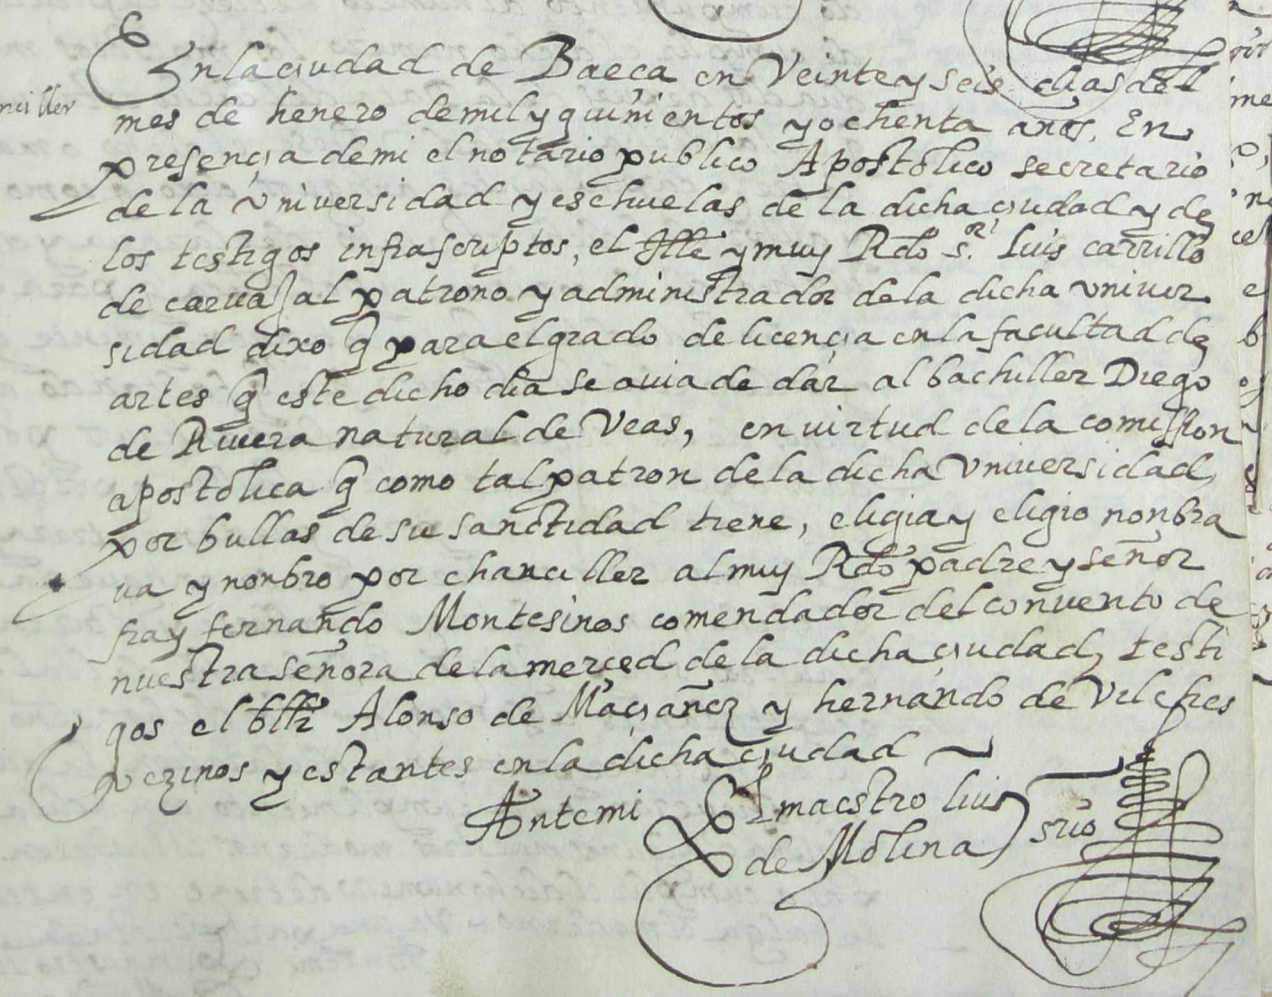 En la ciudad de Baeça en Veinte y seis dias del
nciller
mes de henero de mil y quinientos y ochenta años. En
presençia de mi el notario publico Apostolico secretario
de la vniversidad y eschuelas de la dicha ciudad y de
los testigos infrascriptos, el Ille y muy Rdo s.or Luis carrillo
de carvajal patrono y administrador de la dicha vniver
sidad dixo q para el grado de licençia en la facultad de
artes q este dicho dia se avia de dar al bachiller Diego
de Rivera natural de Veas, en virtud de la comission
apostolica q como tal patron de la dicha Vniversidad,
por bullas de su sanctidad tiene, eligia y eligio nonbra
va y nonbro por chanciller al muy Rdo padre y señor
fray fernando Montesinos comendador del convento de
nuestra señora de la merçed de la dicha ciudad, testi
gos el bller Alonso de Maçiañez y hernando de Vilches
vezinos y estantes en la dicha ciudad
Ante mi El maestro luis
de Molina srio